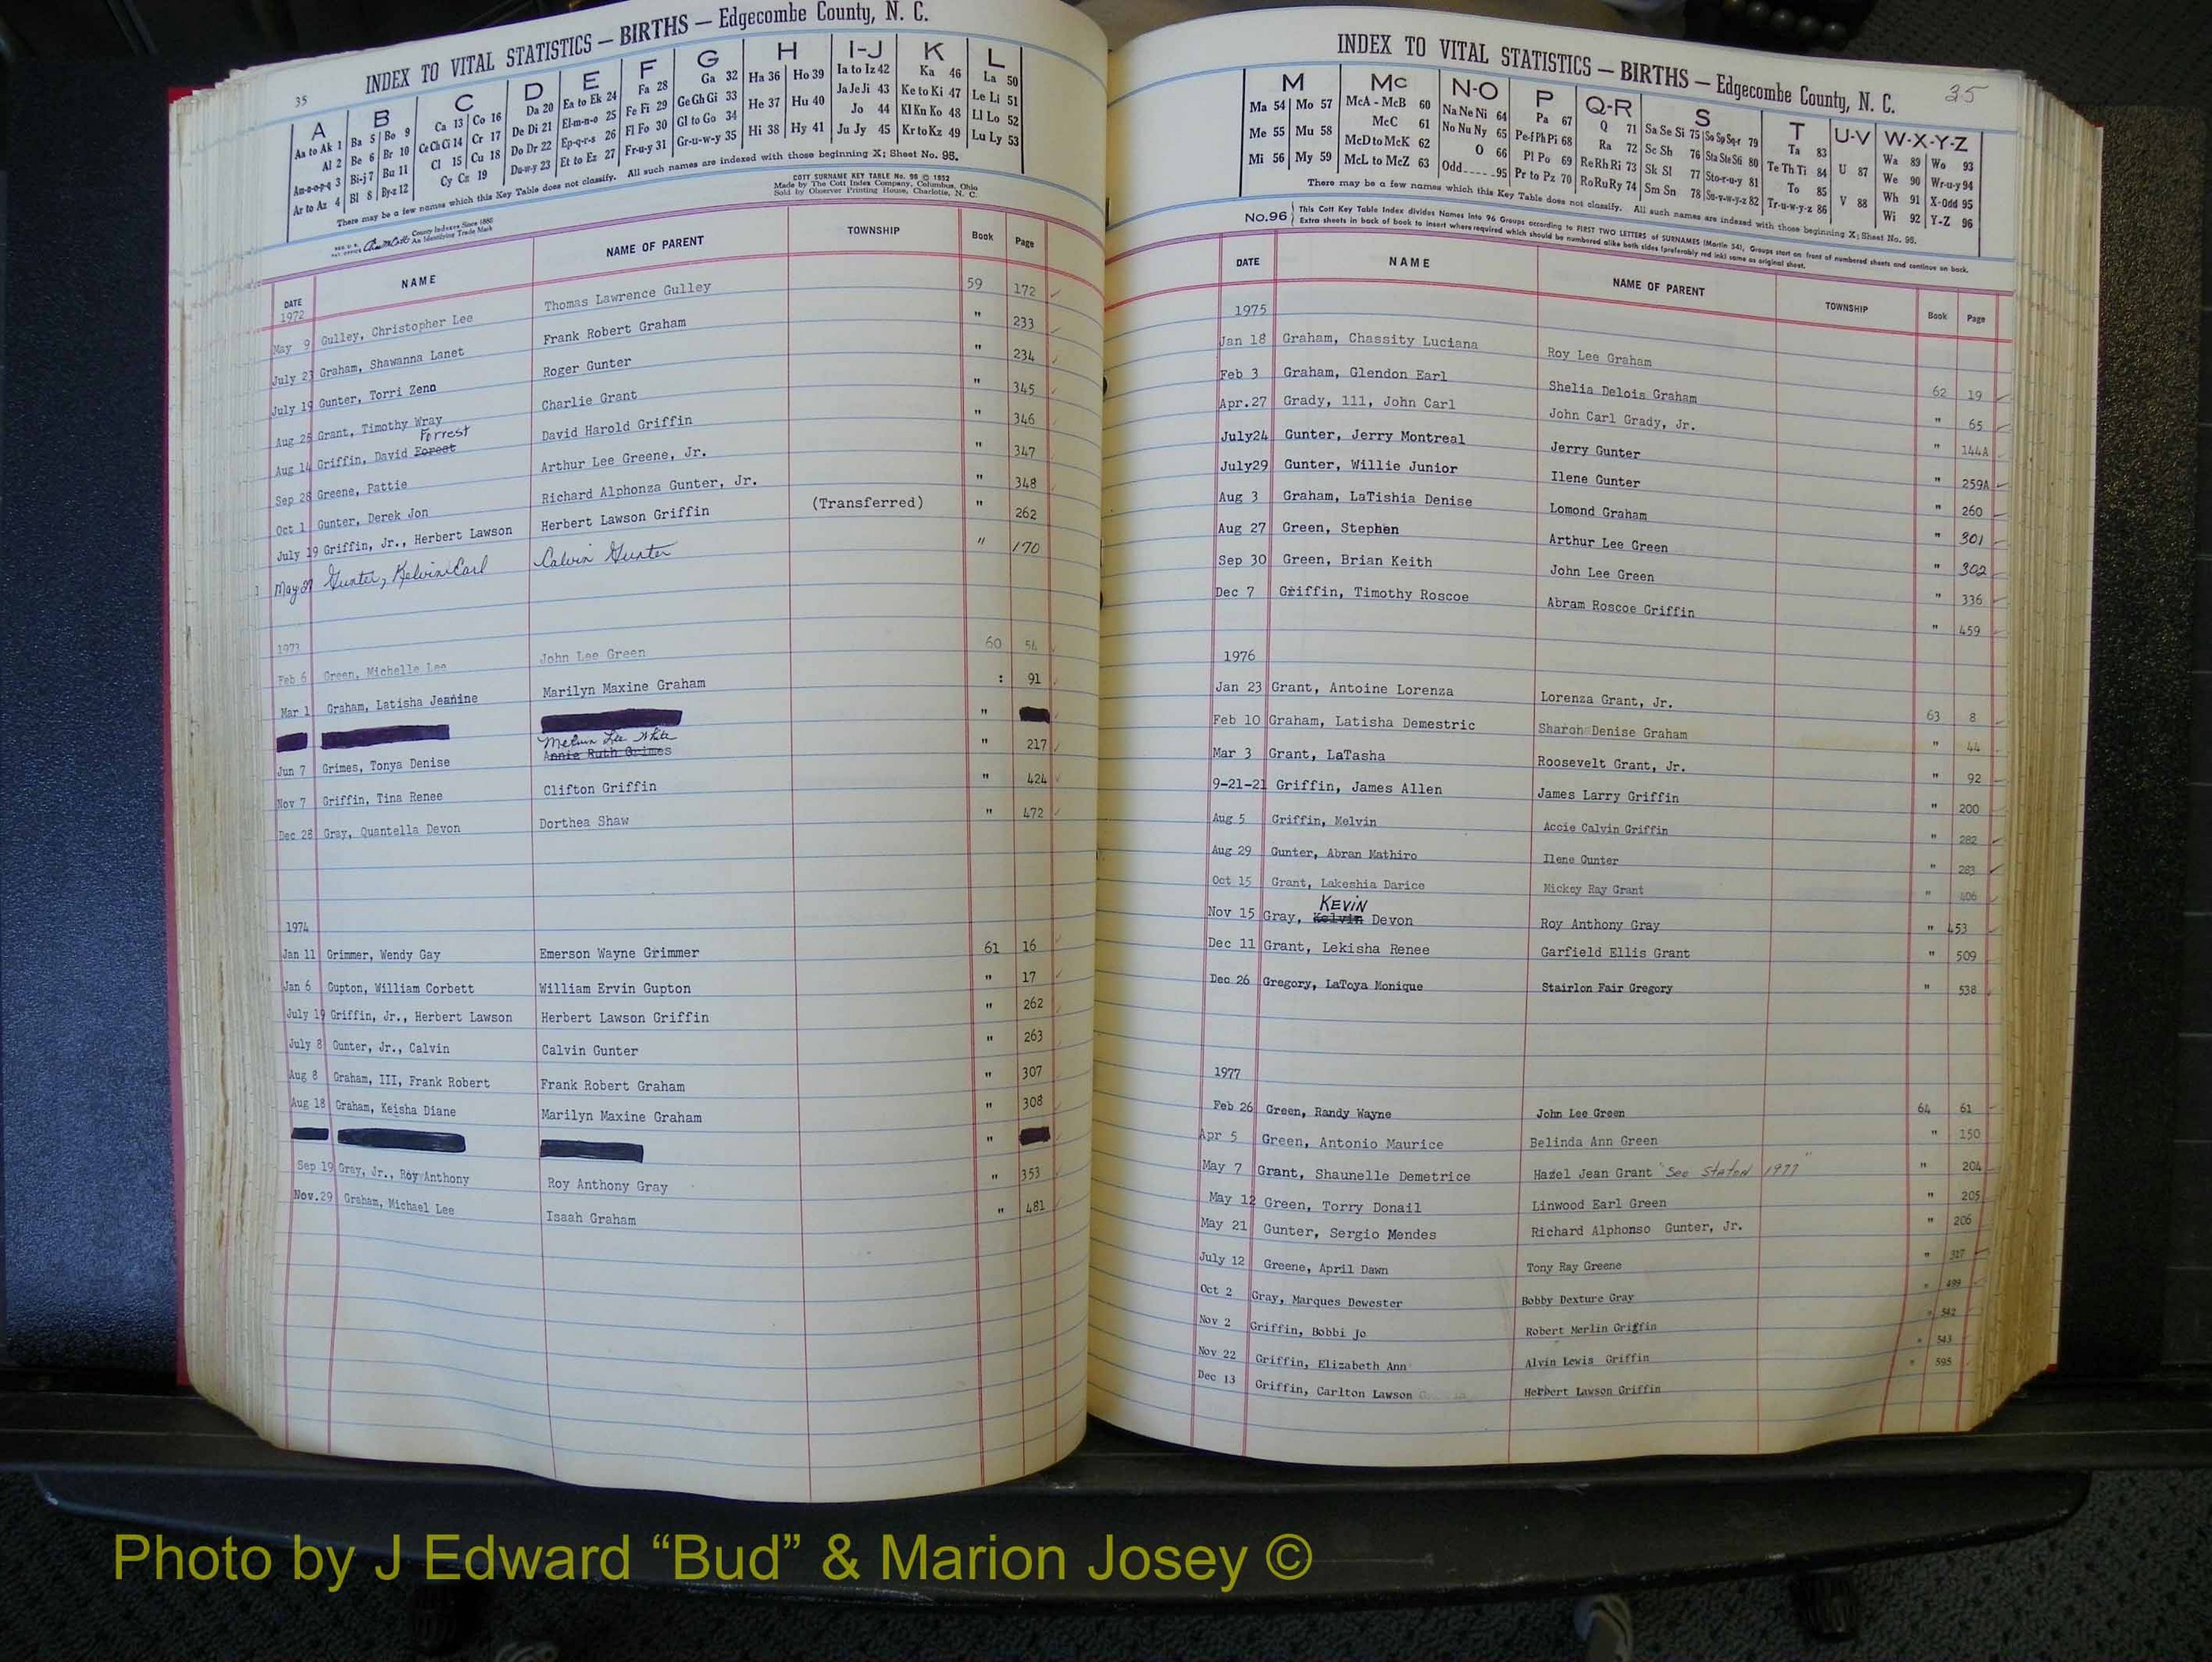 INDEX TO VITAL STATISTICS — BIRTHS — Edgecombe County, N. C.
35
A B C D E F G H I-J K L
Aa to Ak 1 Ba 5 Bo 9 Ca 13 Co 16 Da 20 Ea to Ek 24 Fa 28 Ga 32 Ha 36 Ho 39 Ia to Iz 42 Ka 46 La 50
Al 2 Be 6 Br 10 Ce Ch Ci 14 Cr 17 De Di 21 El-m-n-o 25 Fe Fi 29 Ge Gh Gi 33 He 37 Hu 40 Ja Je Ji 43 Ke to Ki 47 Le Li 51
Am-n-o-p-q 3 Bi-j 7 Bu 11 Cl 15 Cu 18 Do Dr 22 Ep-q-r-s 26 Fl Fo 30 Gl to Go 34 Hi 38 Hy 41 Jo 44 Kl Kn Ko 48 Ll Lo 52
Ar to Az 4 Bl 8 By-z 12 Cy Cz 19 Du-w-y 23 Et to Ez 27 Fr-u-y 31 Gr-u-w-y 35 Ju Jy 45 Kr to Kz 49 Lu Ly 53
There may be a few names which this Key Table does not classify. All such names are indexed with those beginning X; Sheet No. 98.
COTT SURNAME KEY TABLE No. 96 © 1952
Made by The Cott Index Company, Columbus, Ohio
Sold by Observer Printing House, Charlotte, N. C.
County Indexes Since 1880
As Identifying Trade Mark
DATE NAME NAME OF PARENT TOWNSHIP Book Page
1972
May 9 Gulley, Christopher Lee Thomas Lawrence Gulley 59 172
July 23 Graham, Shawanna Lanet Frank Robert Graham " 233
July 19 Gunter, Torri Zeno Roger Gunter " 234
Aug 25 Grant, Timothy Wray Charlie Grant " 345
Aug 14 Griffin, David Forest Forrest David Harold Griffin " 346
Sep 28 Greene, Pattie Arthur Lee Greene, Jr. " 347
Oct 1 Gunter, Derek Jon Richard Alphonza Gunter, Jr. " 348
July 19 Griffin, Jr., Herbert Lawson Herbert Lawson Griffin (Transferred) " 262
May Gunter, Kelvin Earl Calvin Gunter " 170
1973
Feb 6 Green, Michelle Lee John Lee Green 60 54
Mar 1 Graham, Latisha Jeanine Marilyn Maxine Graham : 91
"
Melvin Lee White
Jun 7 Grimes, Tonya Denise Annie Ruth Grimes " 217
Nov 7 Griffin, Tina Renee Clifton Griffin " 424
Dec 28 Gray, Quantella Devon Dorthea Shaw " 472
1974
Jan 11 Grimmer, Wendy Gay Emerson Wayne Grimmer 61 16
Jan 6 Gupton, William Corbett William Ervin Gupton " 17
July 19 Griffin, Jr., Herbert Lawson Herbert Lawson Griffin " 262
July 8 Gunter, Jr., Calvin Calvin Gunter " 263
Aug 8 Graham, III, Frank Robert Frank Robert Graham " 307
Aug 18 Graham, Keisha Diane Marilyn Maxine Graham " 308
"
Sep 19 Gray, Jr., Roy Anthony Roy Anthony Gray " 353
Nov.29 Graham, Michael Lee Isaah Graham " 481
INDEX TO VITAL STATISTICS — BIRTHS — Edgecombe County, N. C.
35
M Mc N-O P Q-R S T U-V W-X-Y-Z
Ma 54 Mo 57 McA - McB 60 Na Ne Ni 64 Pa 67 Q 71 Sa Se Si 75 So Sp Sq-r 79 Ta 83 U 87 Wa 89 Wo 93
Me 55 Mu 58 McC 61 No Nu Ny 65 Pe-f Ph Pi 68 Ra 72 Sc Sh 76 Sta Ste Sti 80 Te Th Ti 84 We 90 Wr-u-y 94
Mi 56 My 59 McD to McK 62 O 66 Pl Po 69 Re Rh Ri 73 Sk Sl 77 Sto-r-u-y 81 To 85 V 88 Wh 91 X-Odd 95
McL to McZ 63 Odd 95 Pr to Pz 70 Ro Ru Ry 74 Sm Sn 78 Su-v-w-y-z 82 Tr-u-w-y-z 86 Wi 92 Y-Z 96
There may be a few names which this Key Table does not classify. All such names are indexed with those beginning X; Sheet No. 95.
No.96 This Cott Key Table Index divides Names into 96 Groups according to FIRST TWO LETTERS of SURNAMES (Martin 54), Groups start on front of numbered sheets and continue on back.
Extra sheets in back of book to insert where required which should be numbered alike both sides (preferably red ink) same as original sheet.
DATE NAME NAME OF PARENT TOWNSHIP Book Page
1975
Jan 18 Graham, Chassity Luciana Roy Lee Graham 62 19
Feb 3 Graham, Glendon Earl Shelia Delois Graham " 65
Apr.27 Grady, 111, John Carl John Carl Grady, Jr. " 144A
July24 Gunter, Jerry Montreal Jerry Gunter " 259A
July29 Gunter, Willie Junior Ilene Gunter " 260
Aug 3 Graham, LaTishia Denise Lomond Graham " 301
Aug 27 Green, Stephen Arthur Lee Green " 302
Sep 30 Green, Brian Keith John Lee Green " 336
Dec 7 Griffin, Timothy Roscoe Abram Roscoe Griffin " 459
1976
Jan 23 Grant, Antoine Lorenza Lorenza Grant, Jr. 63 8
Feb 10 Graham, Latisha Demestric Sharon Denise Graham " 44
Mar 3 Grant, LaTasha Roosevelt Grant, Jr. " 92
9-21-21 Griffin, James Allen James Larry Griffin " 200
Aug 5 Griffin, Melvin Accie Calvin Griffin " 282
Aug 29 Gunter, Abran Mathiro Ilene Gunter " 283
Oct 15 Grant, Lakeshia Darice Mickey Ray Grant " 406
KEVIN
Nov 15 Gray, Kelvin Devon Roy Anthony Gray " 453
Dec 11 Grant, Lekisha Renee Garfield Ellis Grant " 509
Dec 26 Gregory, LaToya Monique Stairlon Fair Gregory " 538
1977
Feb 26 Green, Randy Wayne John Lee Green 64 61
Apr 5 Green, Antonio Maurice Belinda Ann Green " 150
May 7 Grant, Shaunelle Demetrice Hazel Jean Grant "See Staton 1977" " 204
May 12 Green, Torry Donail Linwood Earl Green " 205
May 21 Gunter, Sergio Mendes Richard Alphonso Gunter, Jr. " 206
July 12 Greene, April Dawn Tony Ray Greene " 317
Oct 2 Gray, Marques Dewester Bobby Dexture Gray " 499
Nov 2 Griffin, Bobbi Jo Robert Merlin Griffin " 542
Nov 22 Griffin, Elizabeth Ann Alvin Lewis Griffin " 543
Dec 13 Griffin, Carlton Lawson Herbert Lawson Griffin " 595
Photo by J Edward “Bud” & Marion Josey ©